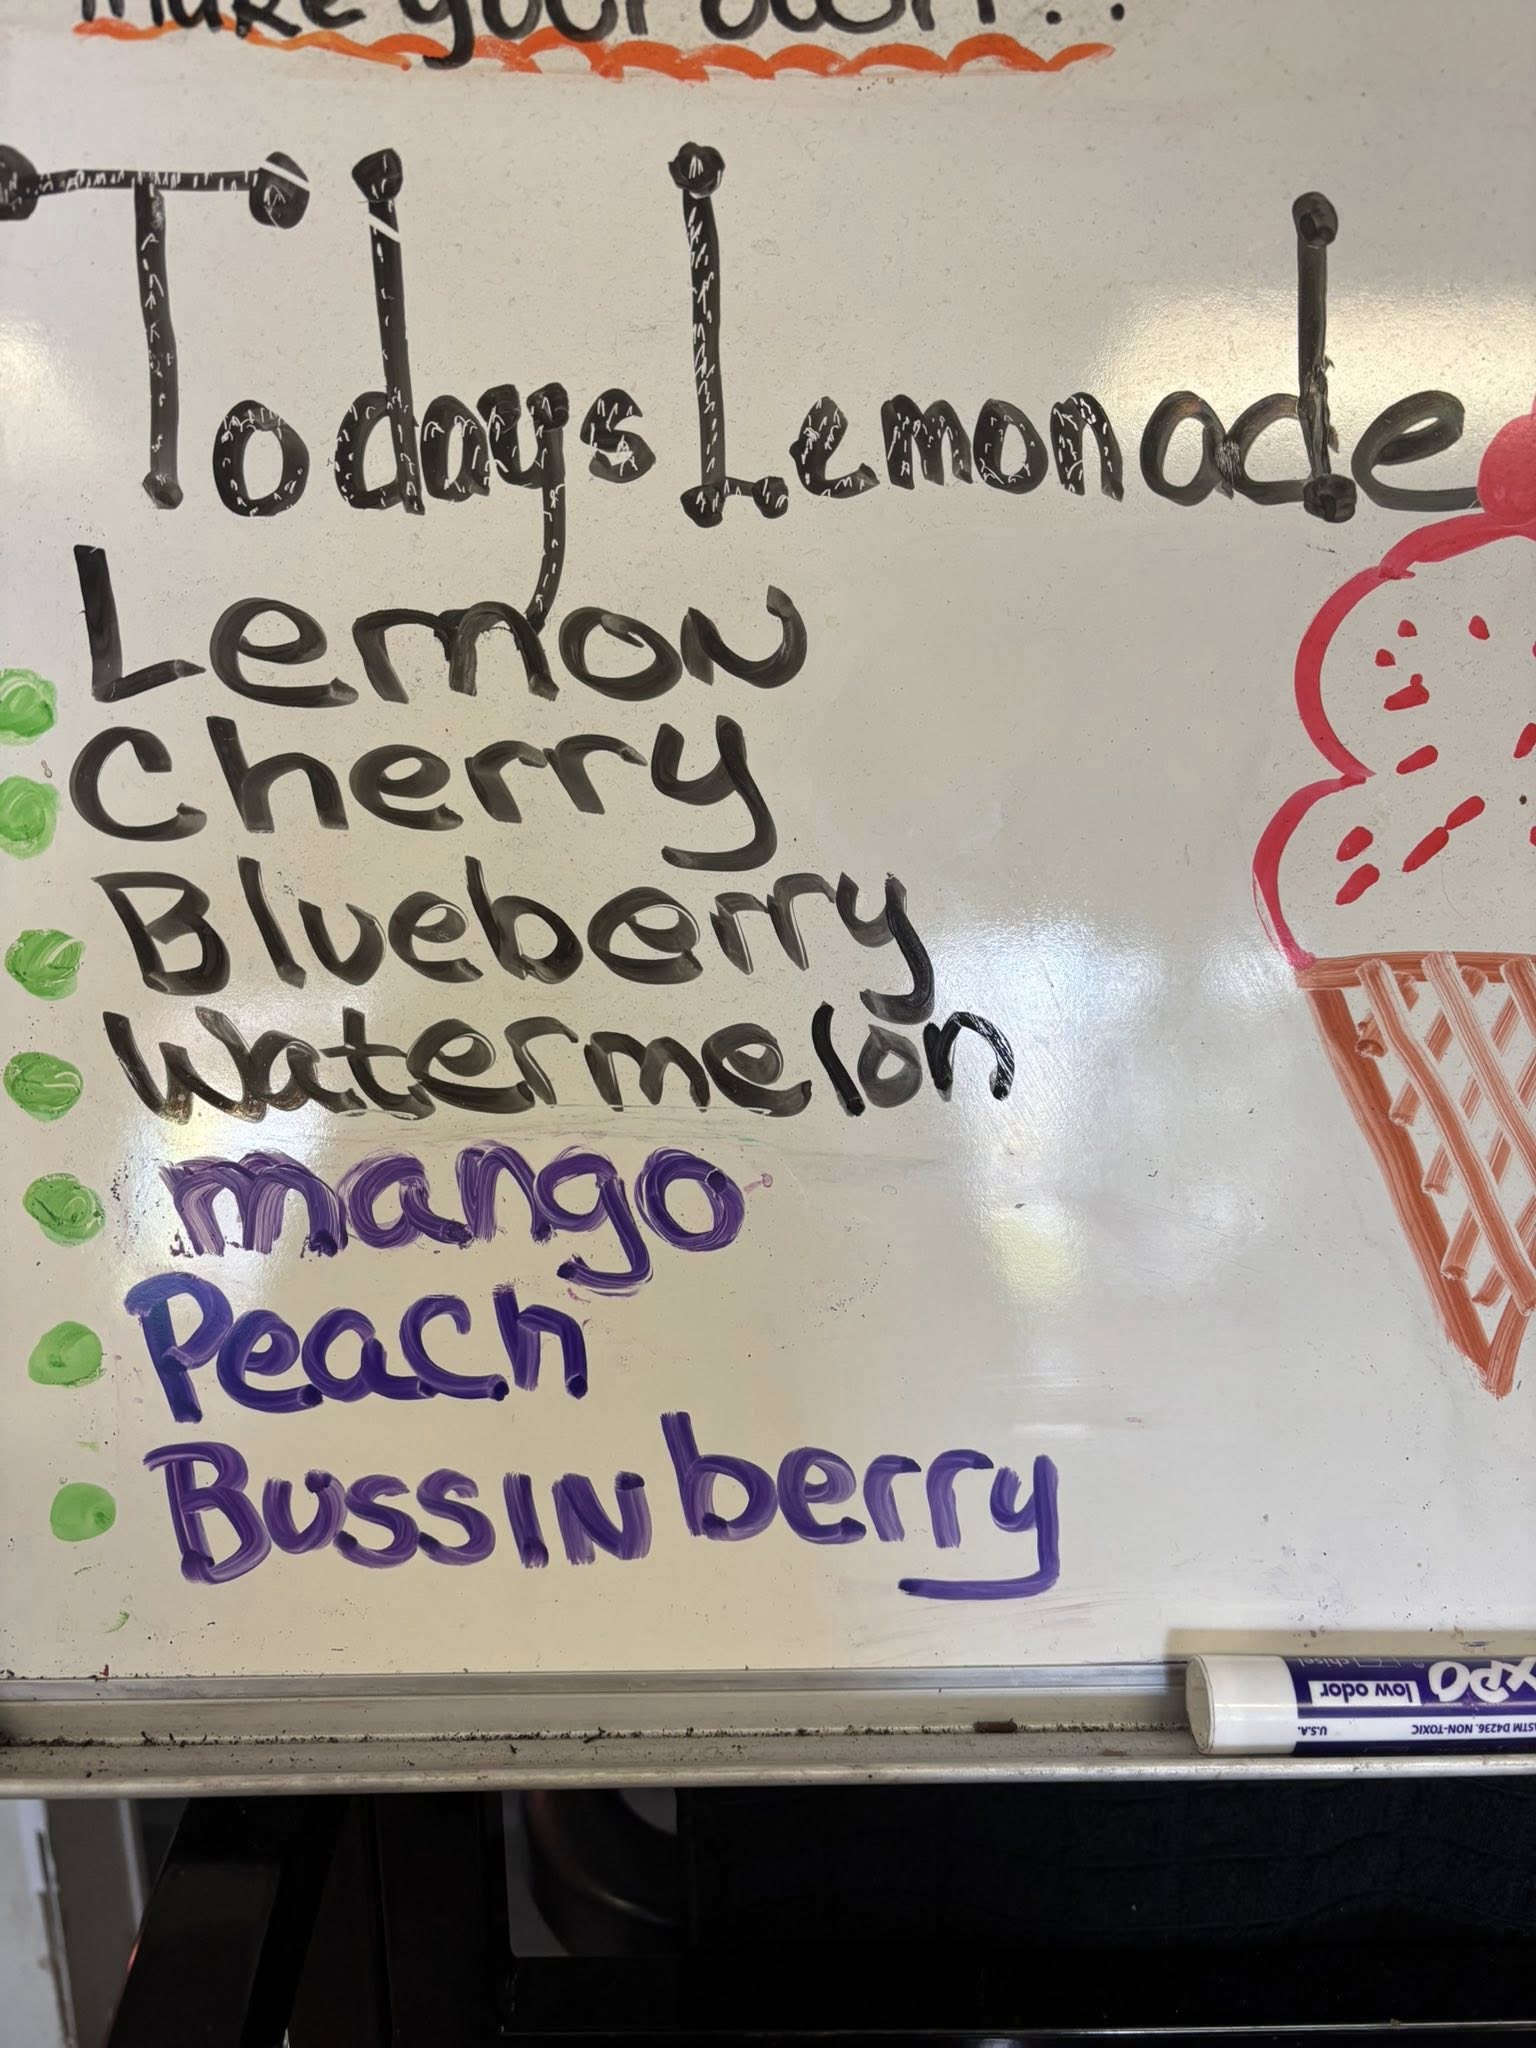 make your own..
Todays Lemonade
Lemon
Cherry
Blueberry
Watermelon
mango
Peach
BussIN berry
chisel
low odor
XPO
ASTM D4236. NON-TOXIC
U.S.A.